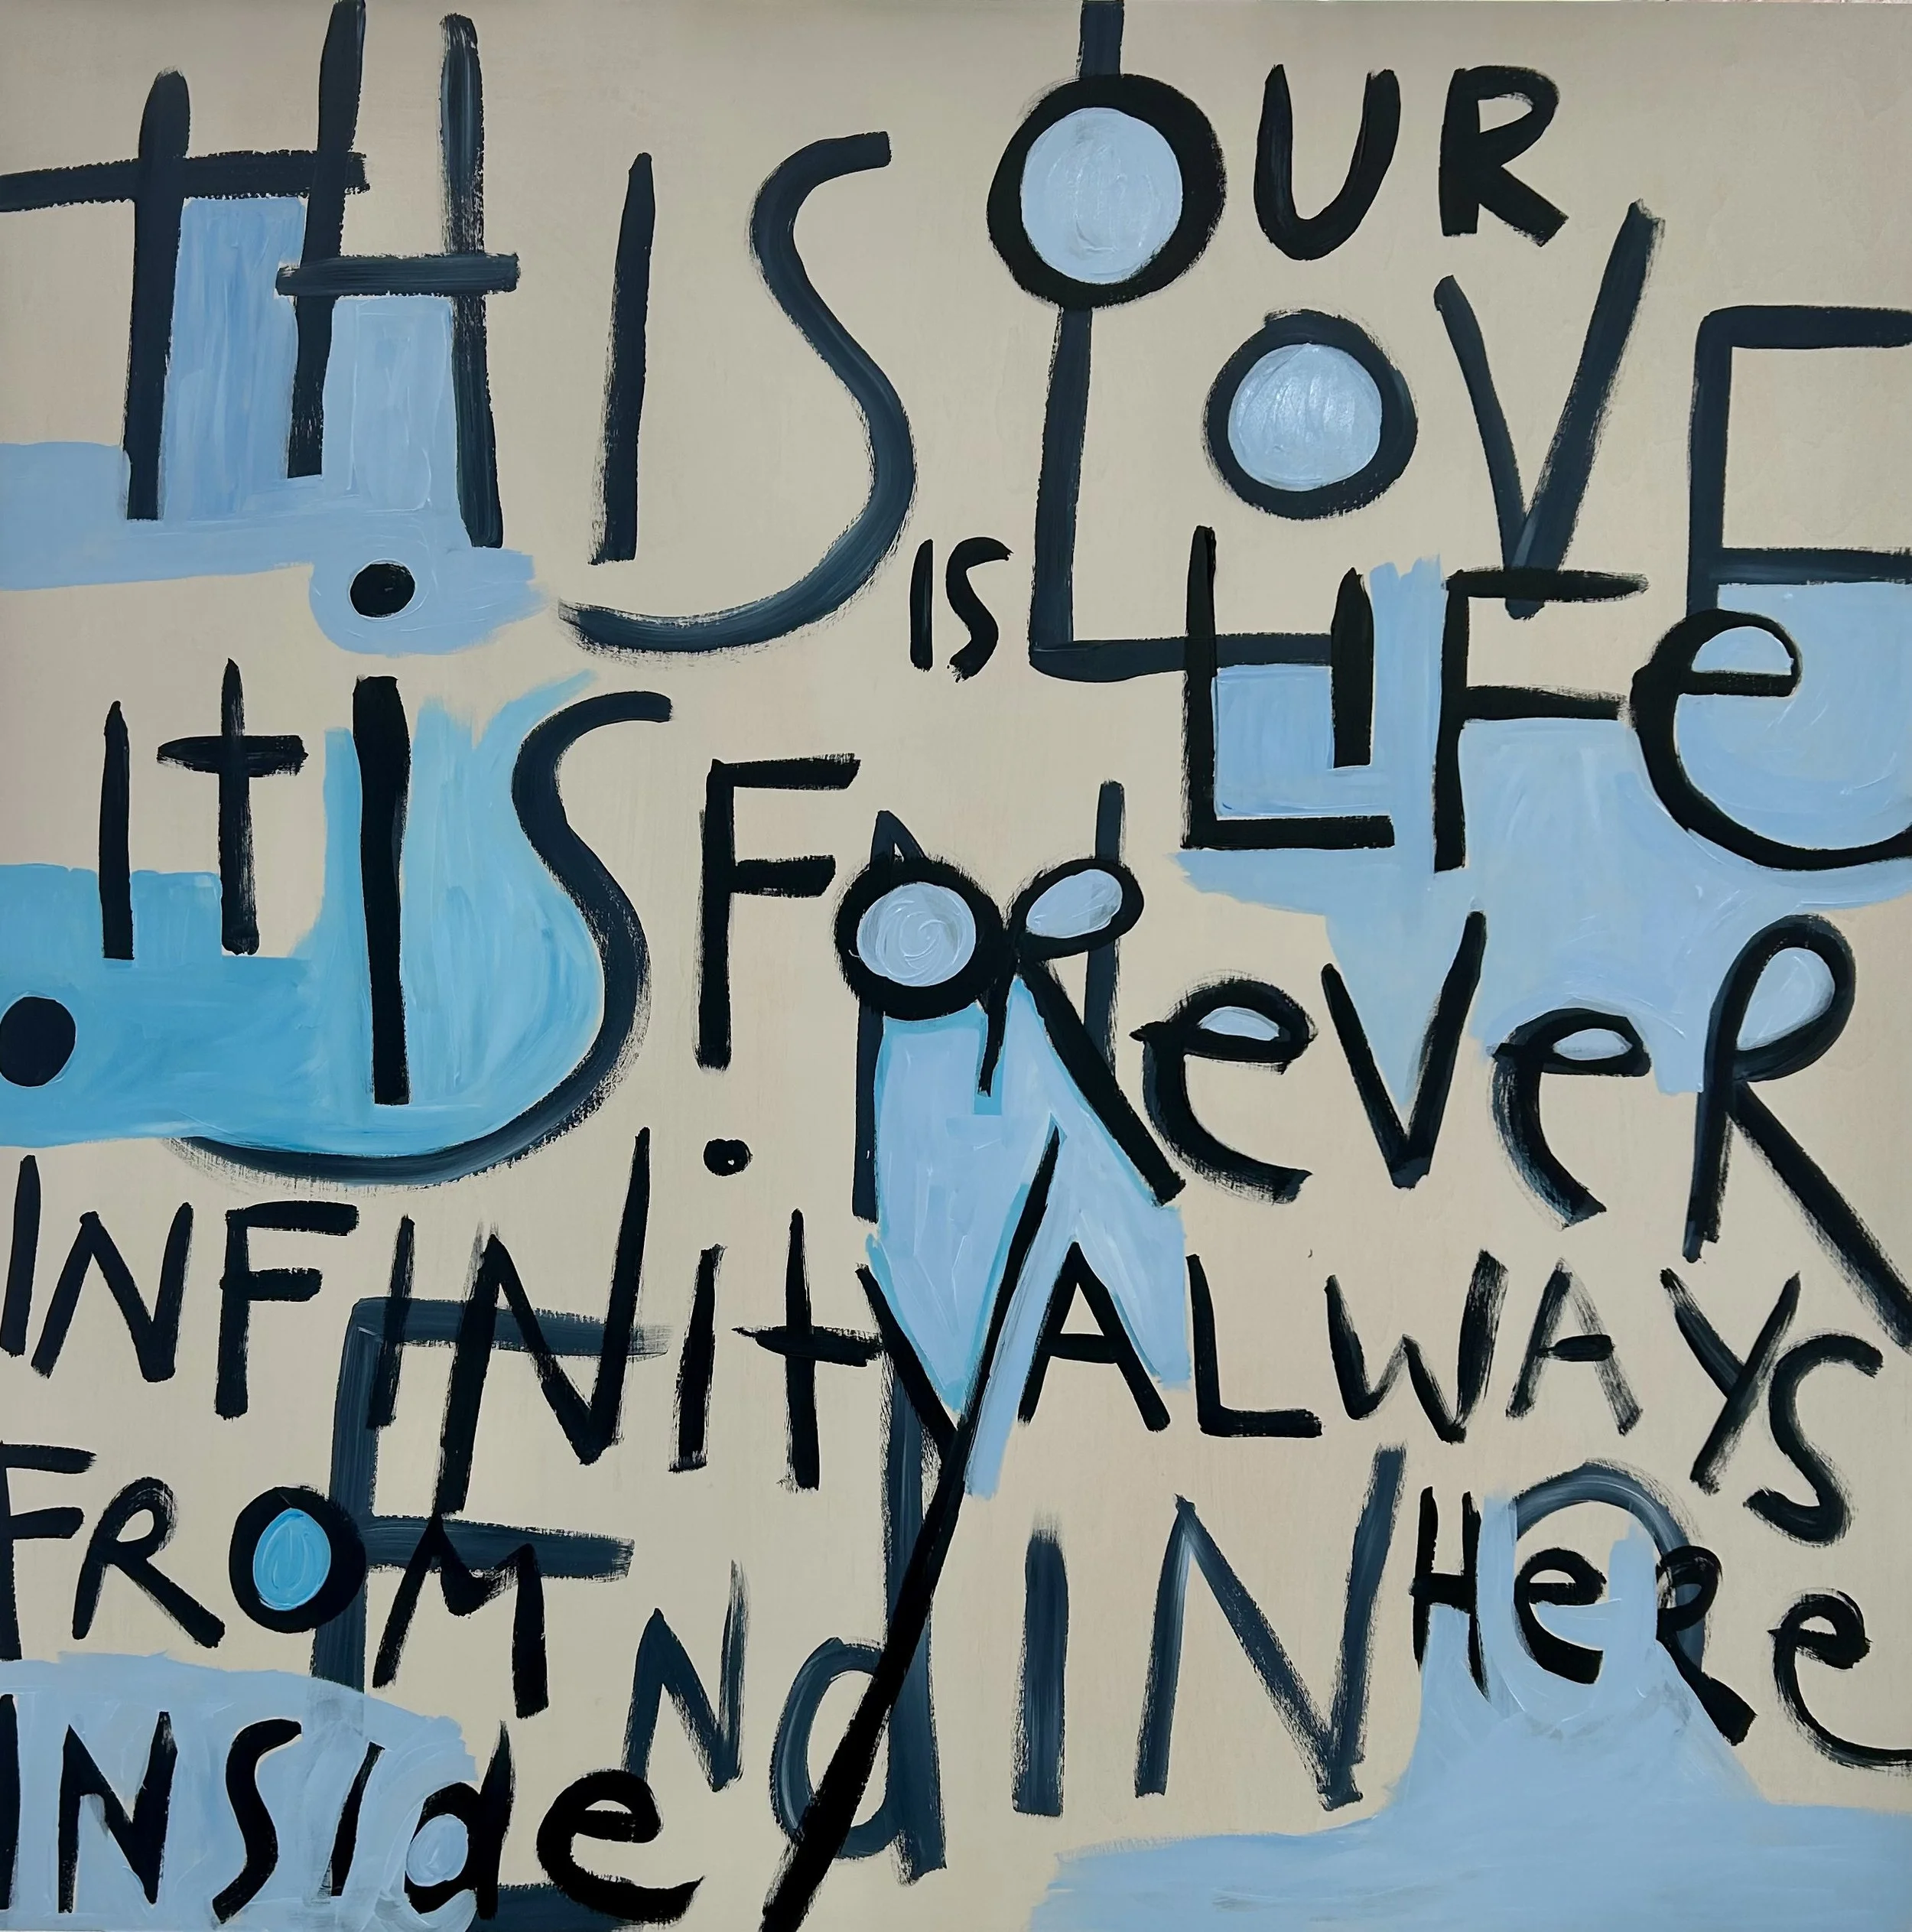 THIS OUR
LOVE
IS LIFe
It IS FOReveR
INFINity ALWAYS
FROM HeRe
INSIde
eNd IN